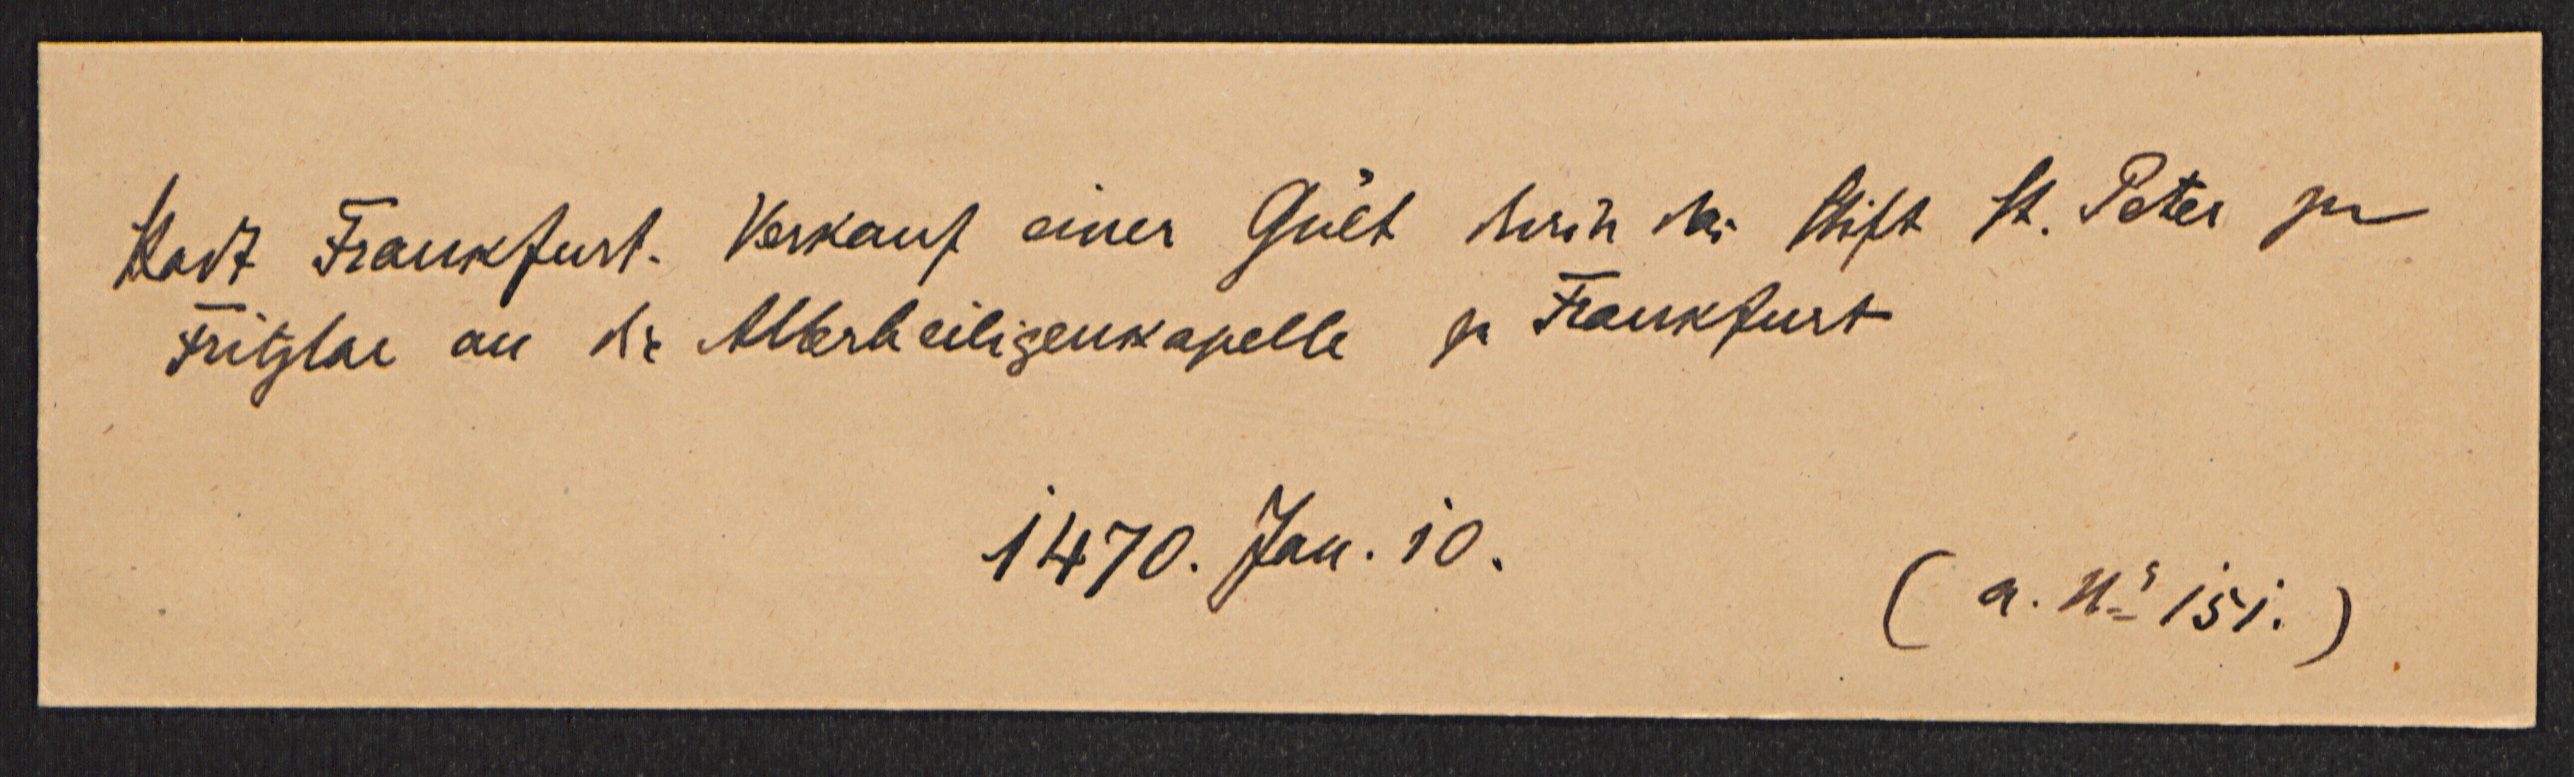 Stadt Frankfurt. Verkauf einer Gült durch das Stift St. Peter zu
Fritzlar an die Allerheiligenkapelle zu Frankfurt
1470. Jan. 10.
( a. No 151. )